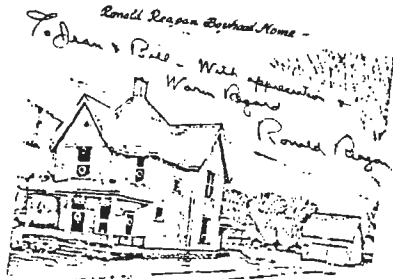 Ronald Reagan Boyhood Home -
To Jean & Bill - With appreciation &
Warm Regard
Ronald Reagan